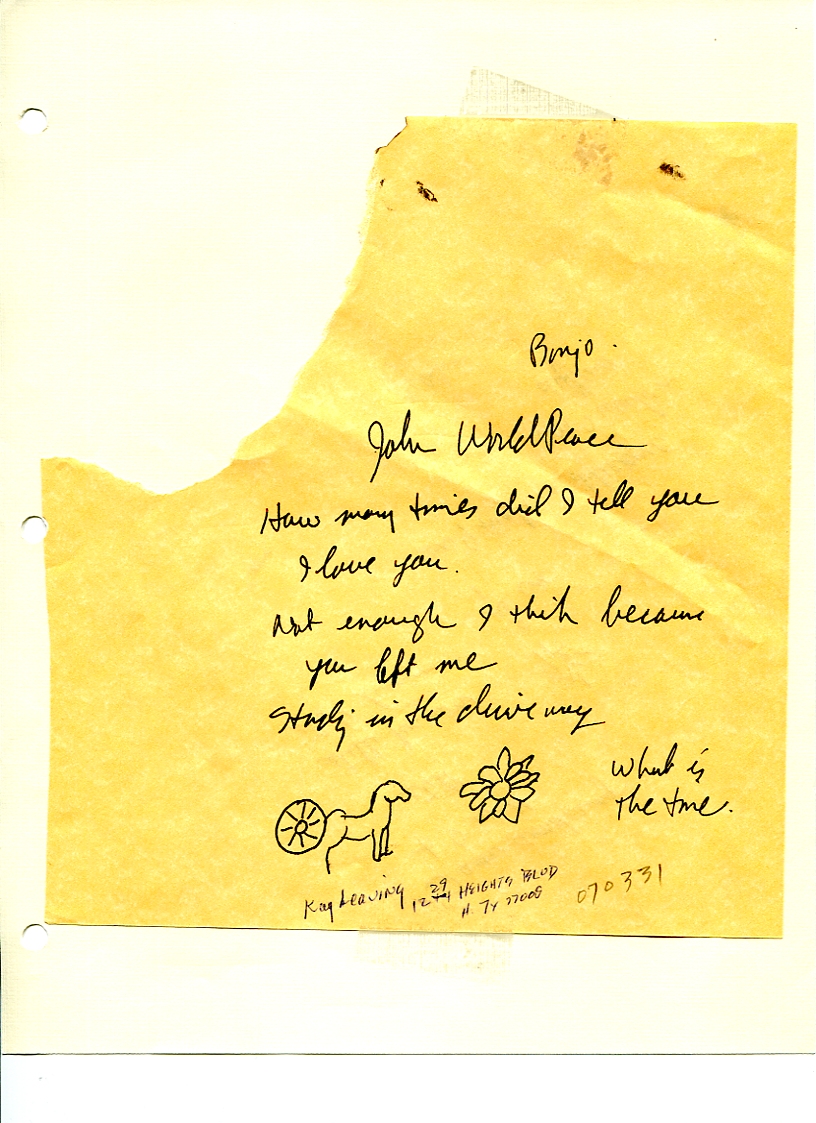 Banjo.
John WorldPeace
How many times did I tell you
I love you.
Not enough I think because
you left me
in the driveway
What is
the time.
Kay Leaving 1229 HEIGHTS BLVD
H. TX 77008
070331